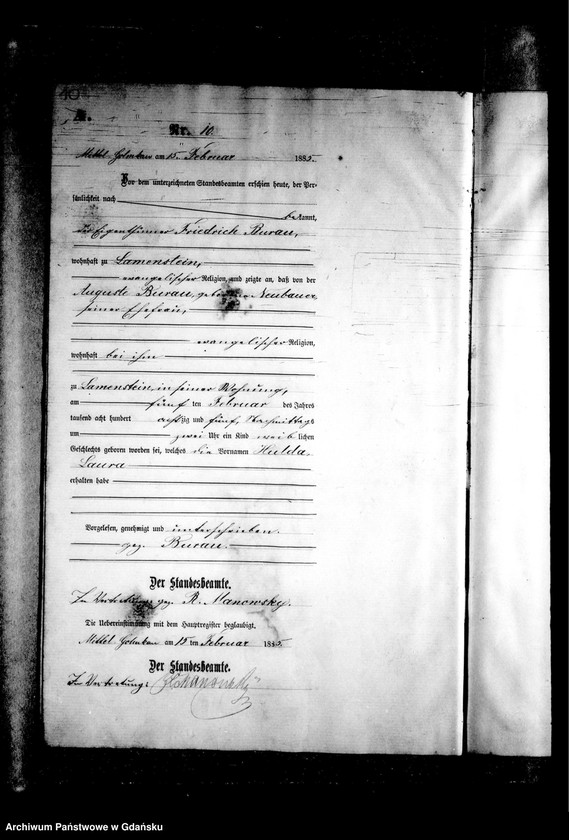 A.
Nr. 10.
Mittel Golmkau am 15. Februar 1885.
Vor dem unterzeichneten Standesbeamten erschien heute, der Per-
sönlichkeit nach
bekannt,
der Eigenthümer Friedrich Burau,
wohnhaft zu Lamenstein,
evangelischer Religion, und zeigte an, daß von der
Auguste Burau, geborenen Neubauer,
seiner Ehefrau,
evangelischer Religion,
wohnhaft bei ihm
zu Lamenstein in seiner Wohnung,
am fünf ten Februar des Jahres
tausend acht hundert achtzig und fünf, Nachmittags
um zwei Uhr ein Kind weiblichen
Geschlechts geboren worden sei, welches die Vornamen Hulda,
Laura
erhalten habe
Vorgelesen, genehmigt und unterschrieben.
gez. Burau.
Der Standesbeamte.
In Vertretung gez. R. Manowsky.
Die Uebereinstimmung mit dem Hauptregister beglaubigt.
Mittel Golmkau am 15 ten Februar 1885.
Der Standesbeamte.
In Vertretung: Manowsky
Archiwum Państwowe w Gdańsku